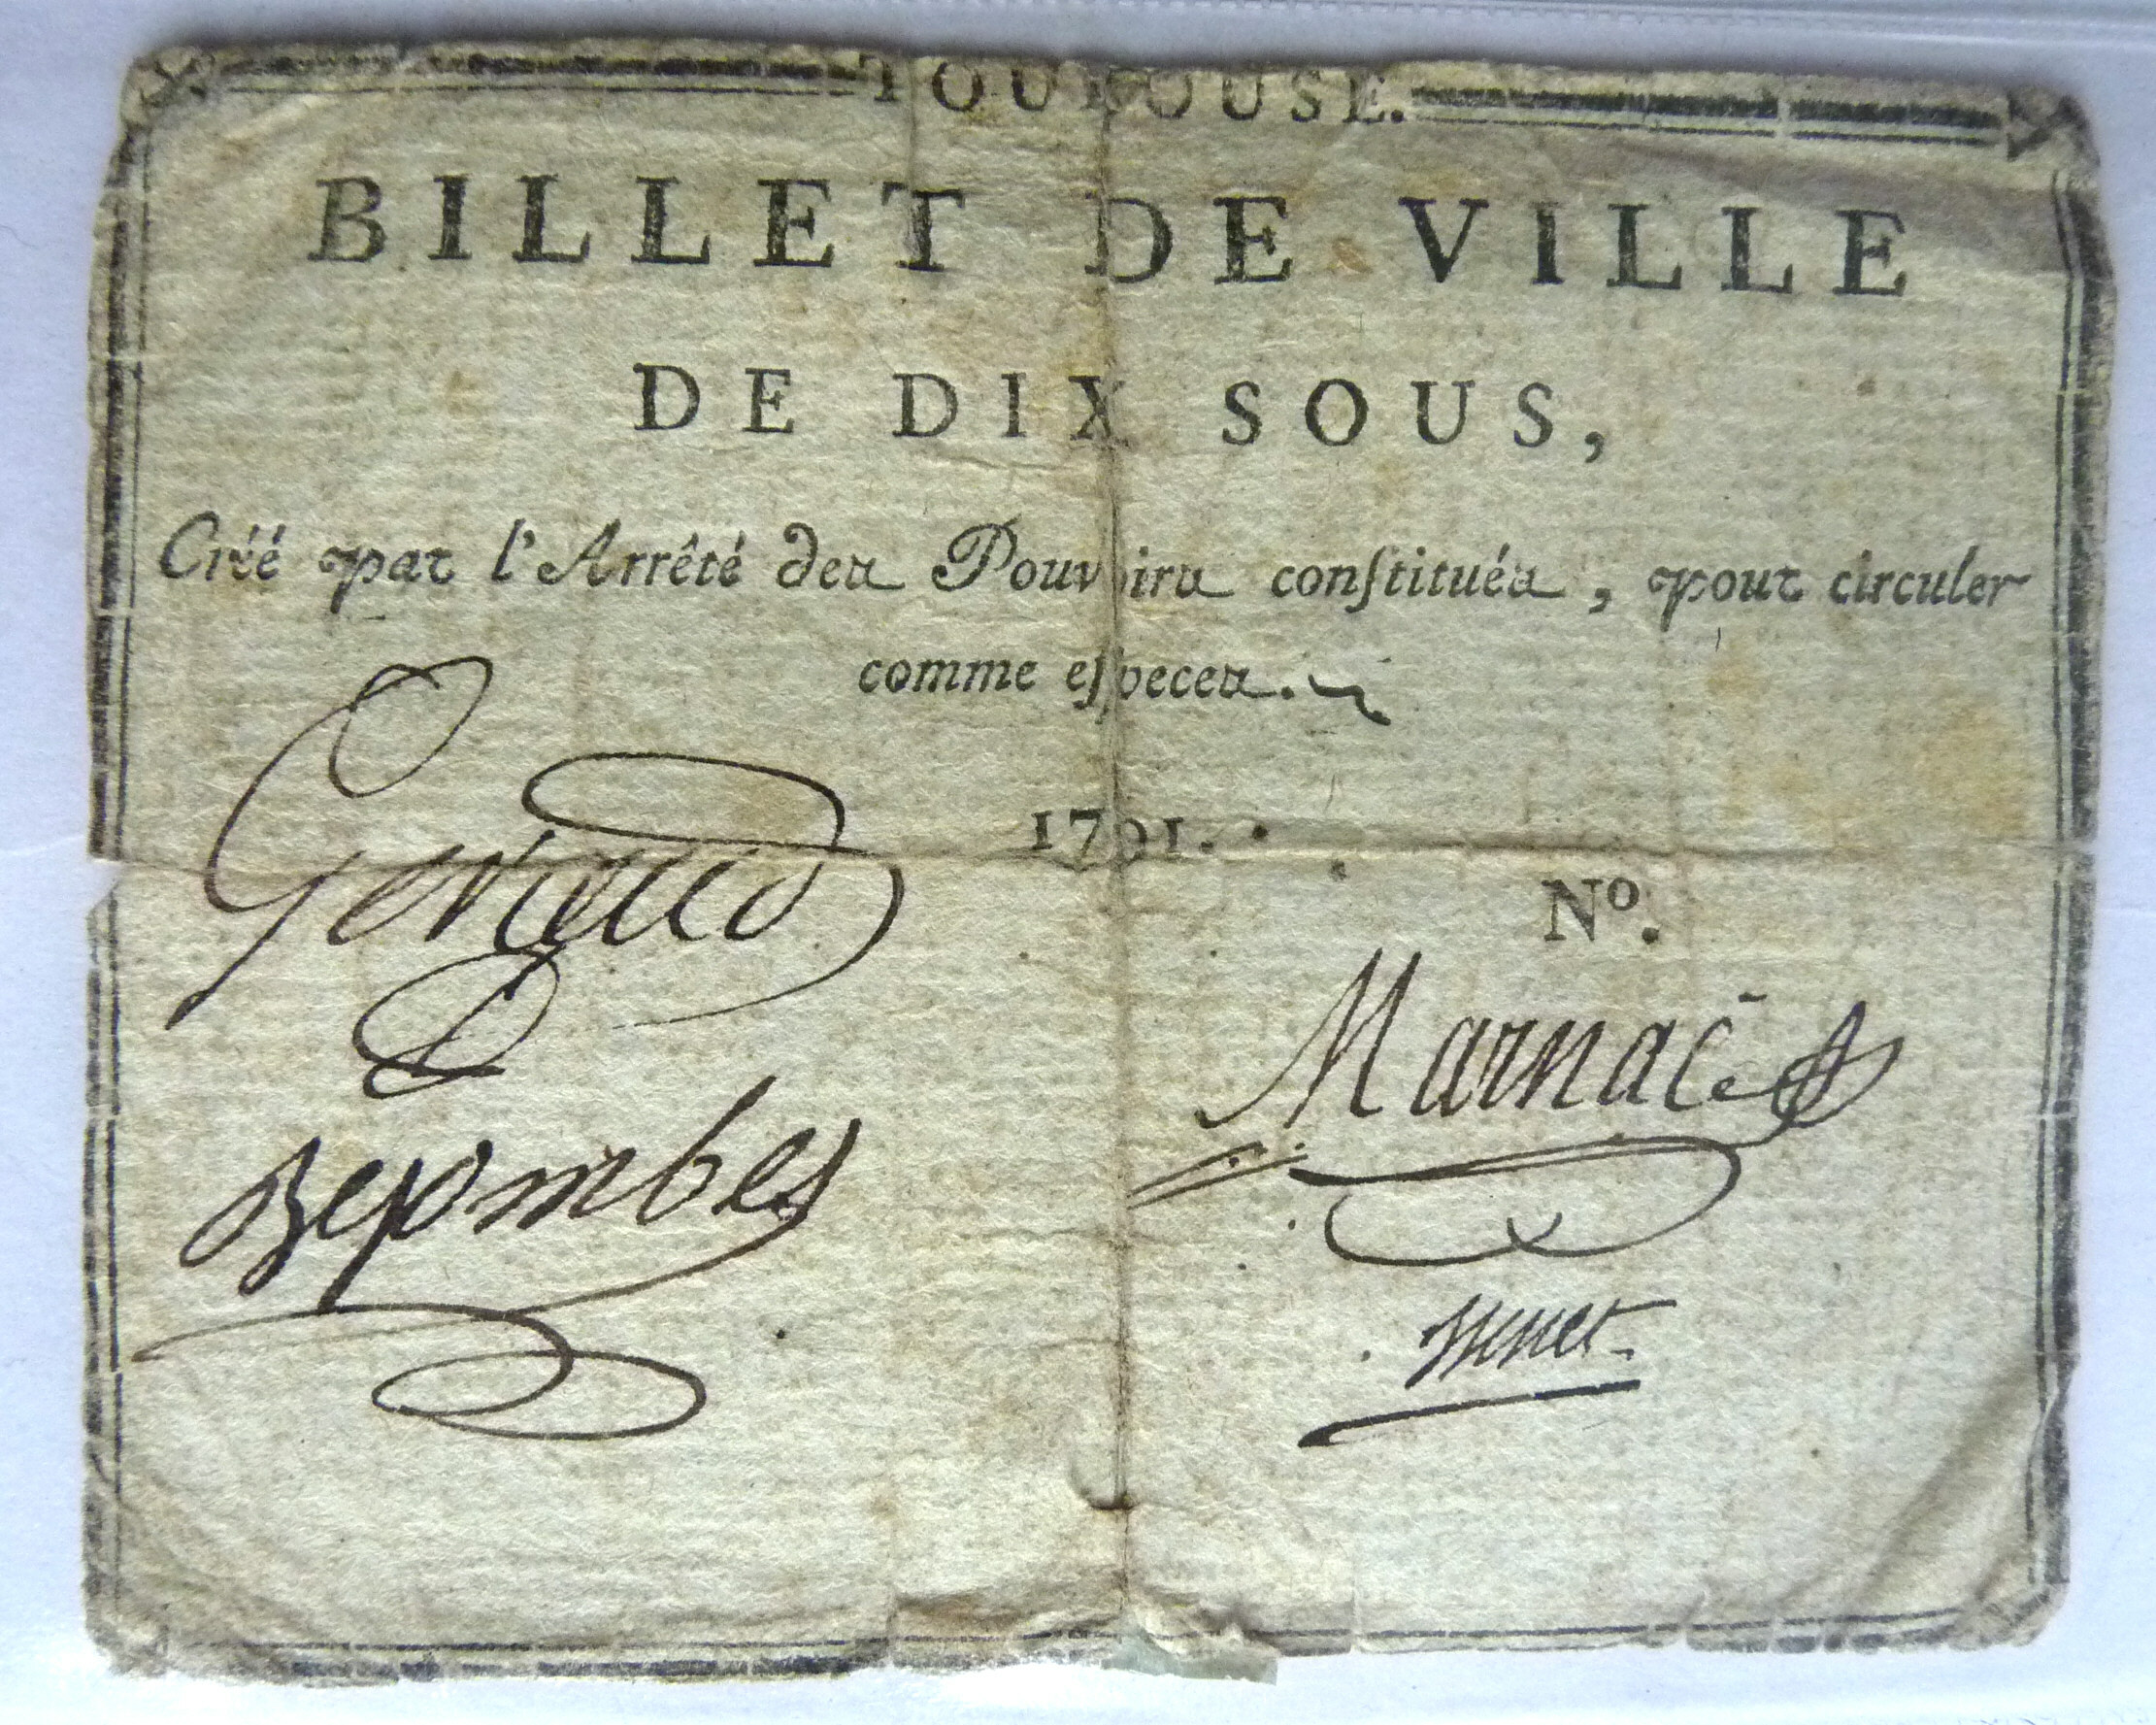 TOULOUSE.
BILLET DE VILLE
DE DIX SOUS,
Créé par l'Arrêté des Pouvoirs conſtitués, pour circuler
comme eſpeces.
1791.
Nº.
Marnac